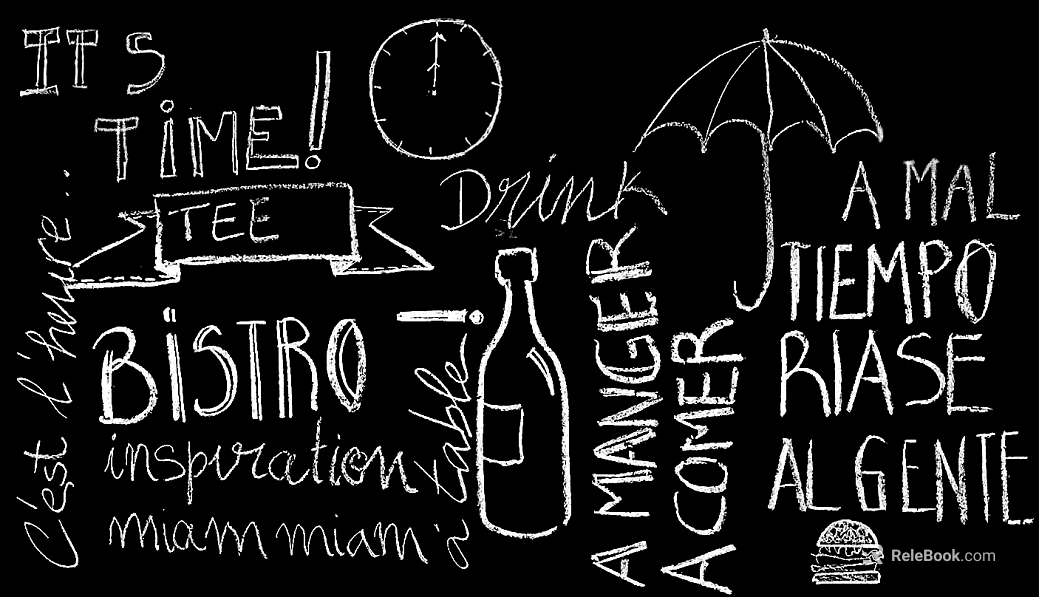 IT'S
TiME!
TEE
Drink
C'est l'heure..
BiSTRO
inspiration
miam miam
à table!
A MANGER
A COMER
A MAL
TIEMPO
RIASE
AL GENTE
ReleBook.com